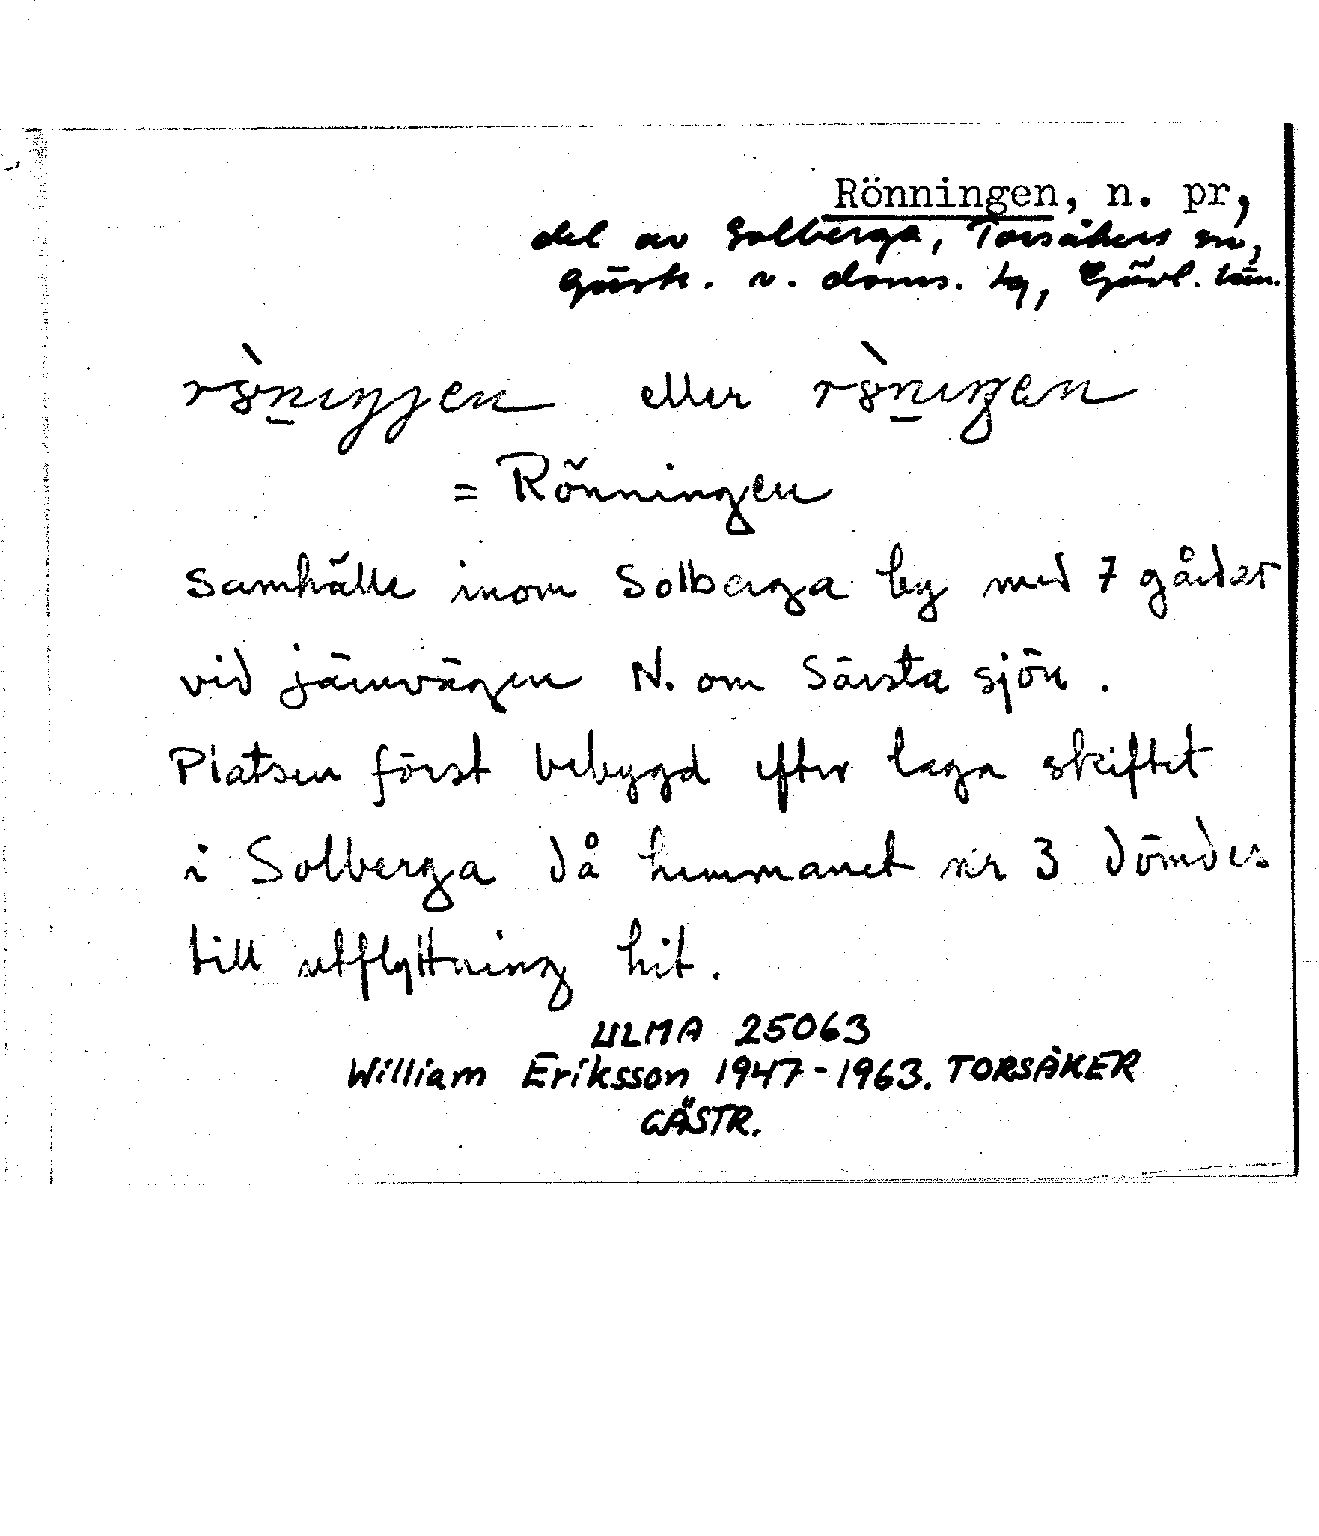 Rönningen, n. pr,
del av Solberga, Torsåkers sn,
Gästr. v. doms. tg, Gävl. län.
eller
= Rönningen
Samhälle inom Solberga by med 7 gårdar
vid järnvägen N. om Särsta sjön.
Platsen först bebygd efter laga skiftet
i Solberga då hemmanet nr 3 dömdes
till utflyttning hit.
ULMA 25063
William Eriksson 1947-1963. TORSÅKER
GÄSTR.